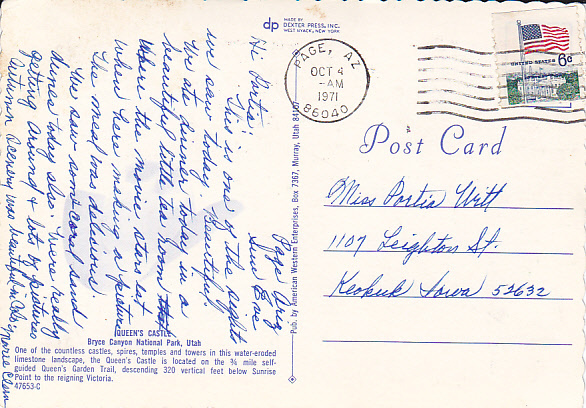 dp MADE BY
DEXTER PRESS, INC.
WEST NYACK, NEW YORK
Page Ariz
Sun Eve
Hi Portia:
This is one of the sights
we saw today. Beautiful
We ate dinner today in a
beautiful little tea room that
where the movie stars eat
when here making a picture
The meal was delicious.
We saw some coral sand
dunes today also. Were really
getting around & lots of pictures
Autumn scenery was beautiful in Colo
QUEEN'S CASTLE
Bryce Canyon National Park, Utah
One of the countless castles, spires, temples and towers in this water-eroded
limestone landscape, the Queen's Castle is located on the ¾ mile self-
guided Queen's Garden Trail, descending 320 vertical feet below Sunrise
Point to the reigning Victoria.
47653-C
Pub. by American Western Enterprises, Box 7367, Murray, Utah 84107
PAGE, AZ
OCT 4
AM
1971
86040
UNITED STATES 6¢
Post Card
Miss Portia Witt
1107 Leighton St.
Keokuk Iowa 52632